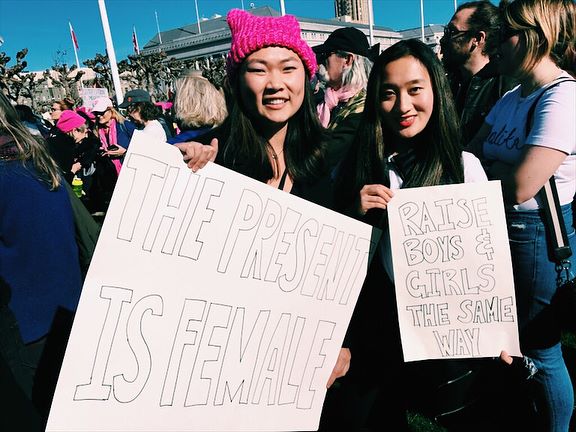 THE PRESENT
IS FEMALE
RAISE
BOYS &
GIRLS
THE SAME
WAY